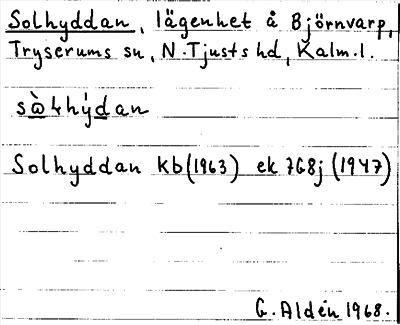 Solhyddan, lägenhet å Björnvarp,
Tryserums sn, N. Tjusts hd, Kalm. l.
Solhyddan kb (1963) ek 7G8j (1947)
G. Aldén 1968.